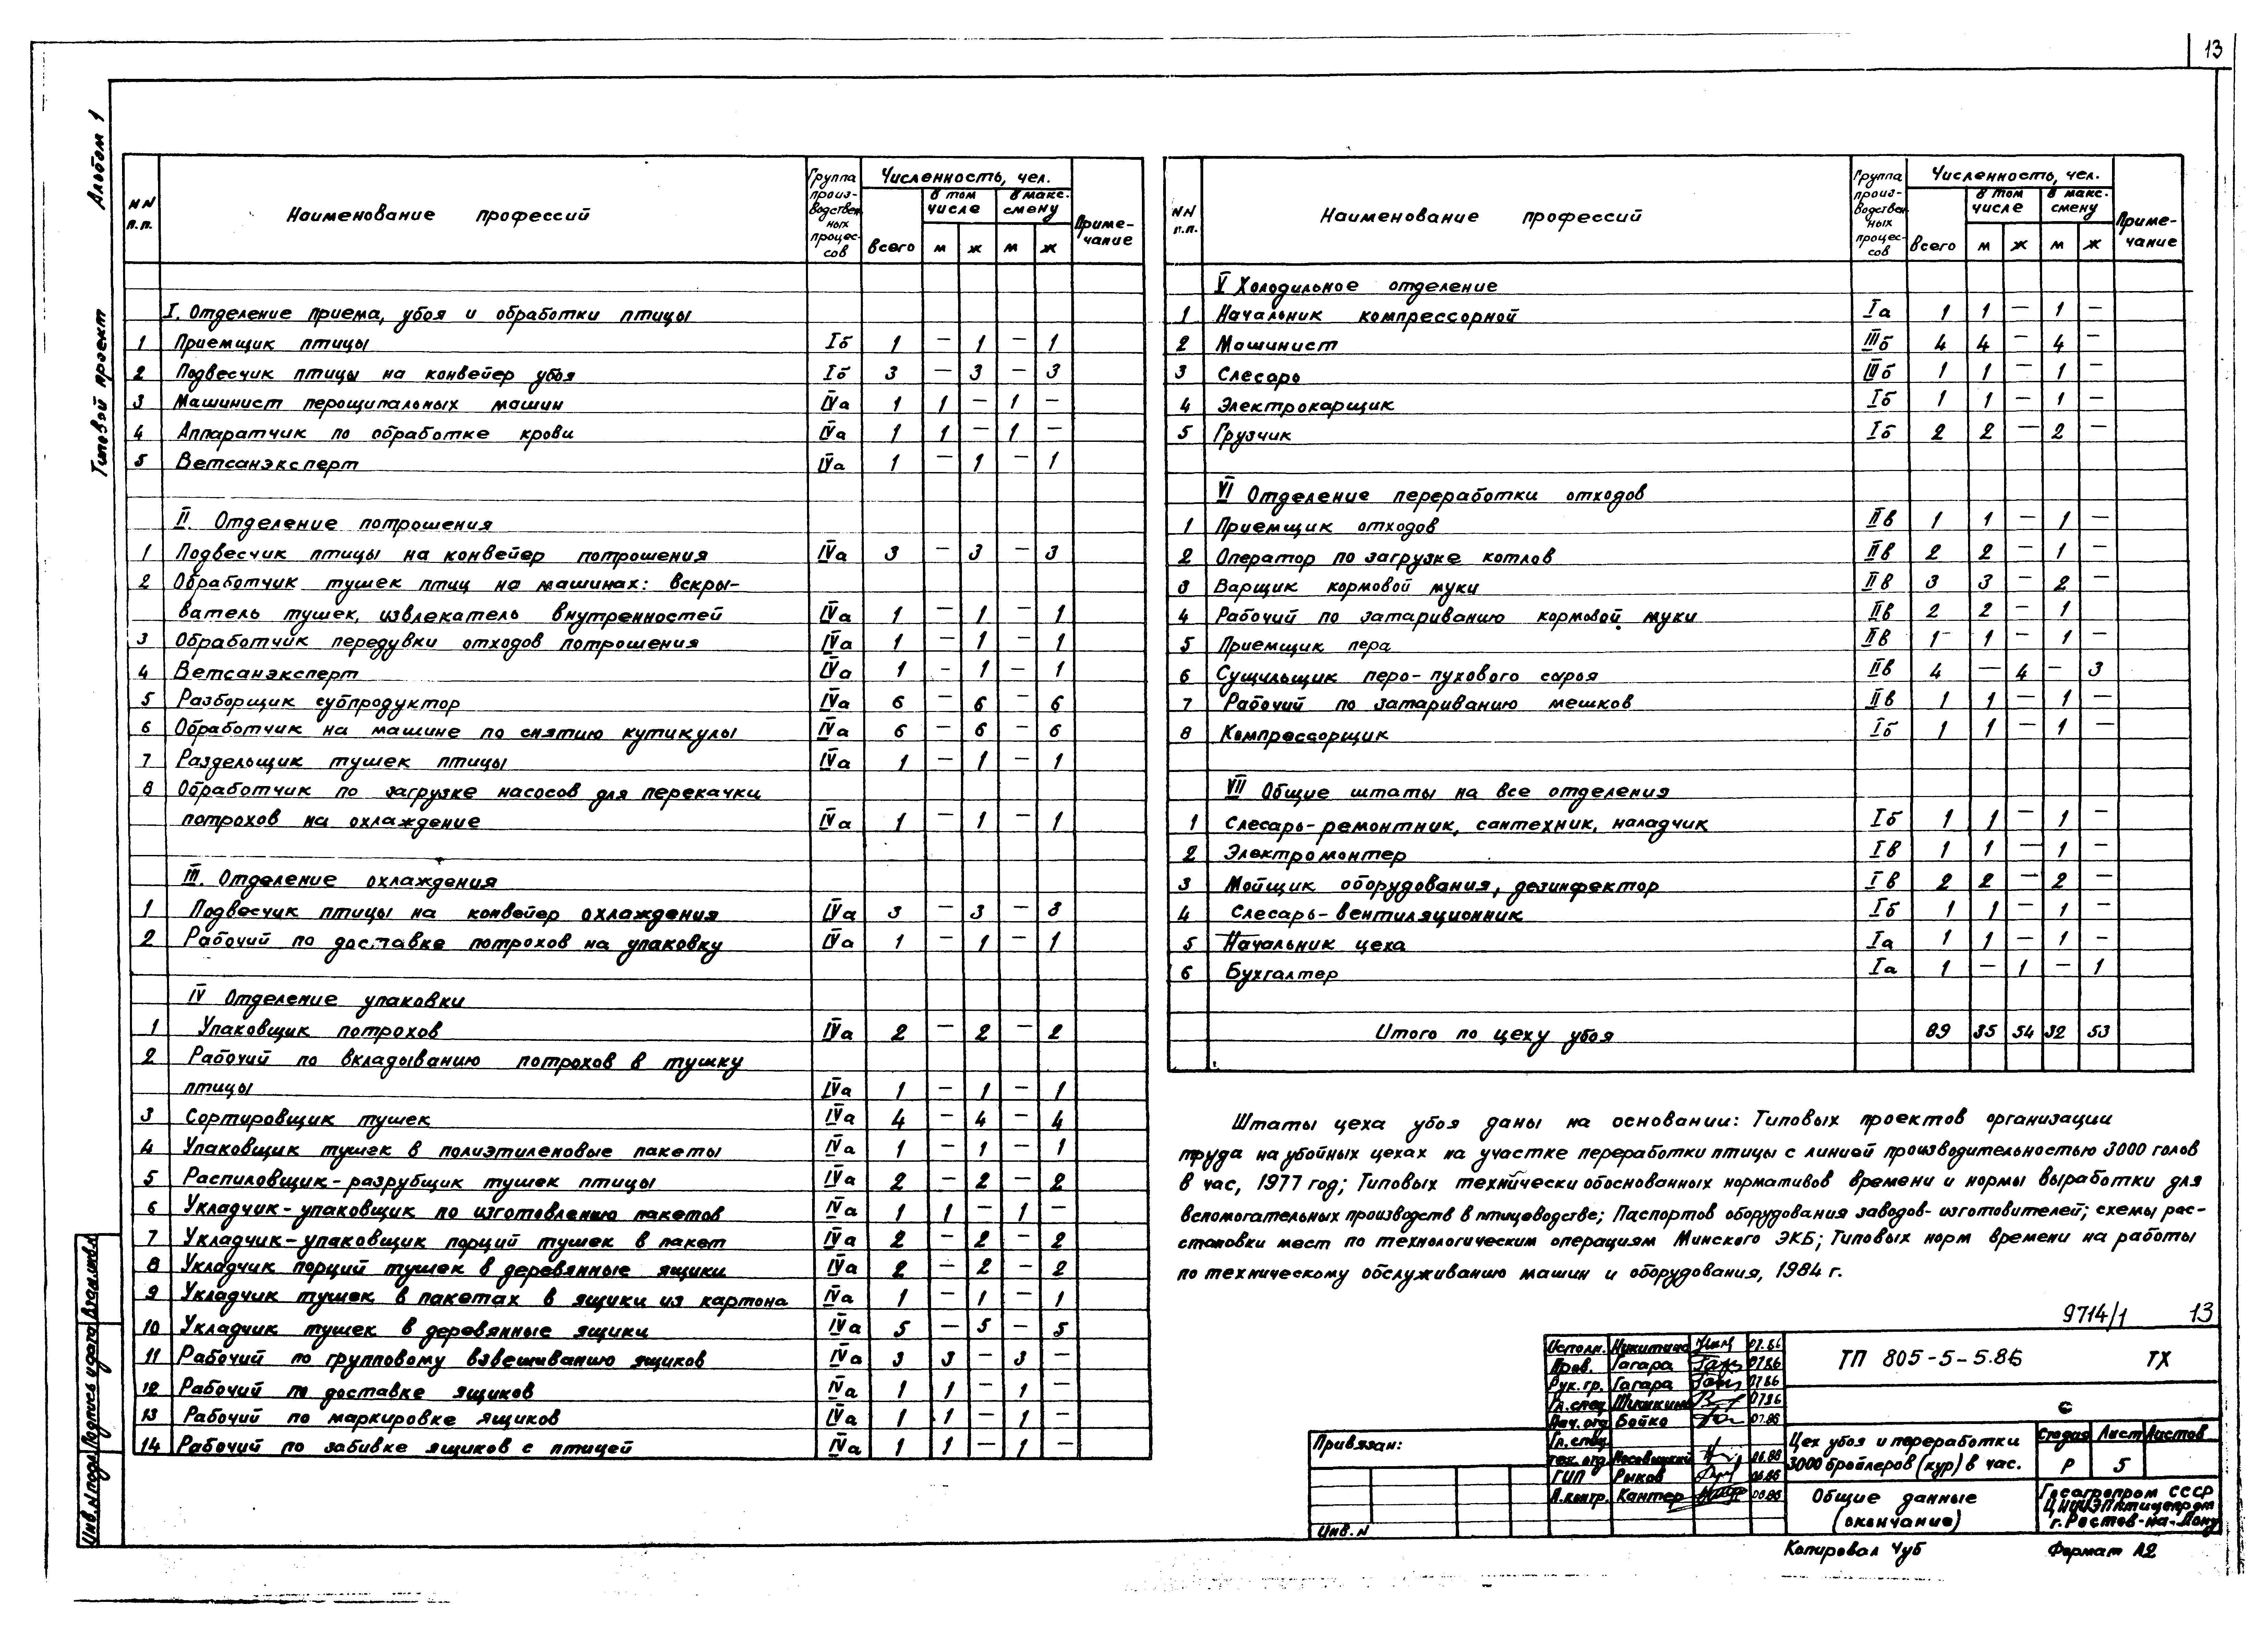 13
Альбом 1
Типовой проект
NN п.п. | Наименование профессий | Группа производственных процессов | Численность, чел. | Примечание
всего | в том числе | в макс. смену
м | ж | м | ж
I. Отделение приема, убоя и обработки птицы
1 Приемщик птицы Iб 1 – 1 – 1
2 Подвесчик птицы на конвейер убоя Iб 3 – 3 – 3
3 Машинист перощипальных машин IVа 1 1 – 1 –
4 Аппаратчик по обработке крови IVа 1 1 – 1 –
5 Ветсанэксперт IVа 1 – 1 – 1
II. Отделение потрошения
1 Подвесчик птицы на конвейер потрошения IVа 3 – 3 – 3
2 Обработчик тушек птиц на машинах: вскры-
ватель тушек, извлекатель внутренностей IVа 1 – 1 – 1
3 Обработчик передувки отходов потрошения IVа 1 – 1 – 1
4 Ветсанэксперт IVа 1 – 1 – 1
5 Разборщик субпродуктор IVа 6 – 6 – 6
6 Обработчик на машине по снятию кутикулы IVа 6 – 6 – 6
7 Раздельщик тушек птицы IVа 1 – 1 – 1
8 Обработчик по загрузке насосов для перекачки
потрохов на охлаждение IVа 1 – 1 – 1
III. Отделение охлаждения
1 Подвесчик птицы на конвейер охлаждения IVа 3 – 3 – 3
2 Рабочий по доставке потрохов на упаковку IVа 1 – 1 – 1
IV Отделение упаковки
1 Упаковщик потрохов IVа 2 – 2 – 2
2 Рабочий по вкладыванию потрохов в тушку
птицы IVа 1 – 1 – 1
3 Сортировщик тушек IVа 4 – 4 – 4
4 Упаковщик тушек в полиэтиленовые пакеты IVа 1 – 1 – 1
5 Распиловщик-разрубщик тушек птицы IVа 2 – 2 – 2
6 Укладчик-упаковщик по изготовлению пакетов IVа 1 1 – 1 –
7 Укладчик-упаковщик порций тушек в пакет IVа 2 – 2 – 2
8 Укладчик порций тушек в деревянные ящики IVа 2 – 2 – 2
9 Укладчик тушек в пакетах в ящики из картона IVа 1 – 1 – 1
10 Укладчик тушек в деревянные ящики IVа 5 – 5 – 5
11 Рабочий по групповому взвешиванию ящиков IVа 3 3 – 3 –
12 Рабочий по доставке ящиков IVа 1 1 – 1 –
13 Рабочий по маркировке ящиков IVа 1 1 – 1 –
14 Рабочий по забивке ящиков с птицей IVа 1 1 – 1 –
NN п.п. | Наименование профессий | Группа производственных процессов | Численность, чел. | Примечание
всего | в том числе | в макс. смену
м | ж | м | ж
V Холодильное отделение
1 Начальник компрессорной Iа 1 1 – 1 –
2 Машинист IIIб 4 4 – 4 –
3 Слесарь IIIб 1 1 – 1 –
4 Электрокарщик Iб 1 1 – 1 –
5 Грузчик Iб 2 2 – 2 –
VI Отделение переработки отходов
1 Приемщик отходов IIв 1 1 – 1 –
2 Оператор по загрузке котлов IIв 2 2 – 1 –
3 Варщик кормовой муки IIв 3 3 – 2 –
4 Рабочий по затариванию кормовой муки IIв 2 2 – 1 –
5 Приемщик пера IIв 1 1 – 1 –
6 Сушильщик перо-пухового сырья IIв 4 – 4 – 3
7 Рабочий по затариванию мешков IIв 1 1 – 1 –
8 Компрессорщик Iб 1 1 – 1 –
VII Общие штаты на все отделения
1 Слесарь-ремонтник, сантехник, наладчик Iб 1 1 – 1 –
2 Электромонтер Iв 1 1 – 1 –
3 Мойщик оборудования, дезинфектор Iв 2 2 – 2 –
4 Слесарь-вентиляционник Iб 1 1 – 1 –
5 Начальник цеха Iа 1 1 – 1 –
6 Бухгалтер Iа 1 – 1 – 1
Итого по цеху убоя 89 35 54 32 53
Штаты цеха убоя даны на основании: Типовых проектов организации
труда на убойных цехах на участке переработки птицы с линией производительностью 3000 голов
в час, 1977 год; Типовых технически обоснованных нормативов времени и нормы выработки для
вспомогательных производств в птицеводстве; Паспортов оборудования заводов-изготовителей; схемы рас-
становки мест по технологическим операциям Минского ЭКБ; Типовых норм времени на работы
по техническому обслуживанию машин и оборудования, 1984 г.
9714/1 13
Исполн. Никитина 07.86
Пров. Гагара 07.86
Рук. гр. Гагара 07.86
Гл. спец Шишкина 07.86
Нач. отд Бойко 07.86
Гл. спец.
тех. отд 06.86
ГИП Рыков 06.86
Н.контр. Кантер 06.86
ТП 805-5-5.86 ТХ
С
Цех убоя и переработки
3000 бройлеров (кур) в час.
Стадия Лист Листов
Р 5
Общие данные
(окончание)
Госагропром СССР
ЦНИИЭПптицепром
г. Ростов-на-Дону
Привязан:
Инв. N
Инв. N подл. Подпись и дата Взам. инв. N
Копировал Чуб
Формат А2